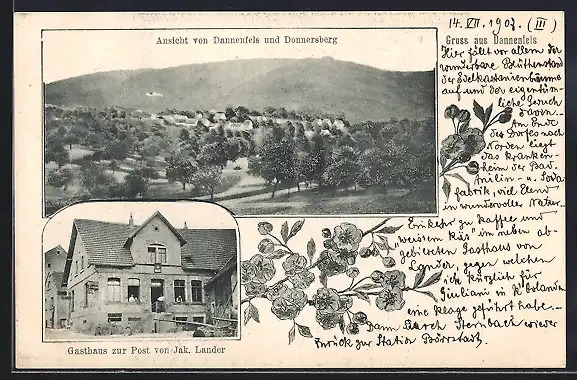 14. VII. 1907. (III)
Ansicht von Dannenfels und Donnersberg
Gruss aus Dannenfels
Hier fällt vor allem der
wunderbare Blüthenstand
der Edelkastanienbäume
auf und der eigentüm-
liche Geruch
davon..
Am Ende
des Dorfes nach
Norden liegt
das Kranken-
heim der Bad.
Anilin- u. Soda
fabrik, viel Elend
in wundervoller Natur..
Einkehr zu Kaffee und
"weisem Käs" im neben ab-
gebildeten Gasthaus von
Lander, gegen welchen
ich kürzlich für
Giuliani in K'bolanden
eine Klage geführt habe..
Dann durch Sternbach wieder
zurück zur Station Börrstadt.
Gasthaus zur Post von Jak. Lander